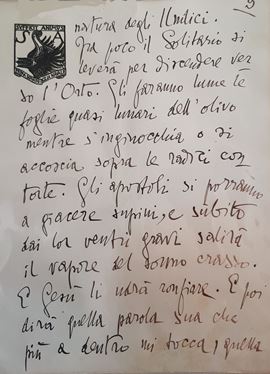 5
nistura degli Undici.
Tra poco il Solitario si
leverà per discendere ver
so l'Orto. Gli faranno lume le
foglie quasi lunari dell'olivo
mentre s'inginocchia o si
accoscia sopra le radici con
torte. Gli apostoli si porranno
a giacere supini, e subito
dai lor ventri gravi salirà
il vapore del sonno crasso.
E Gesù li udrà ronfiare. E poi
dirà quella parola sua che
più a dentro mi tocca, quella